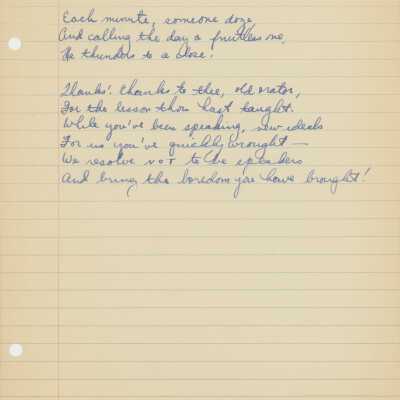 Each minute, someone doze,
And calling the day a fruitless one,
He thunders to a close!
Thanks! thanks to thee, old orator,
For the lesson thou hast taught.
While you've been speaking, new ideals
For us you've quickly wrought —
We resolve NOT to be speakers
And bring the boredom you have brought!